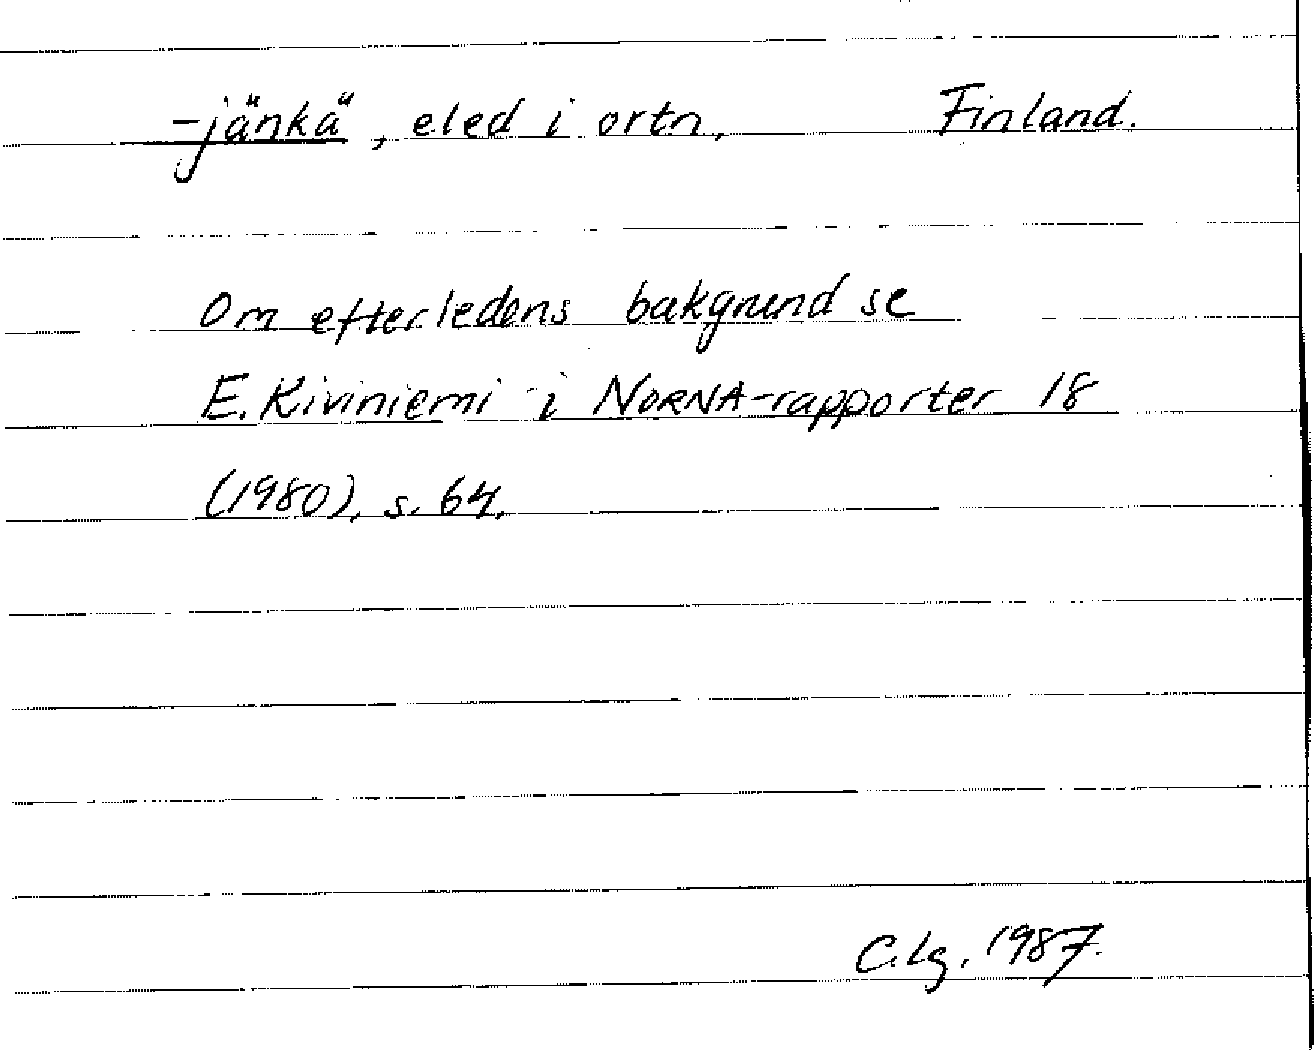 -jänkä, eled i ortn, Finland.
Om efterledens bakgrund se
E. Kiviniemi i NORNA-rapporter 18
(1980), s. 64.
C.Lg. 1987.